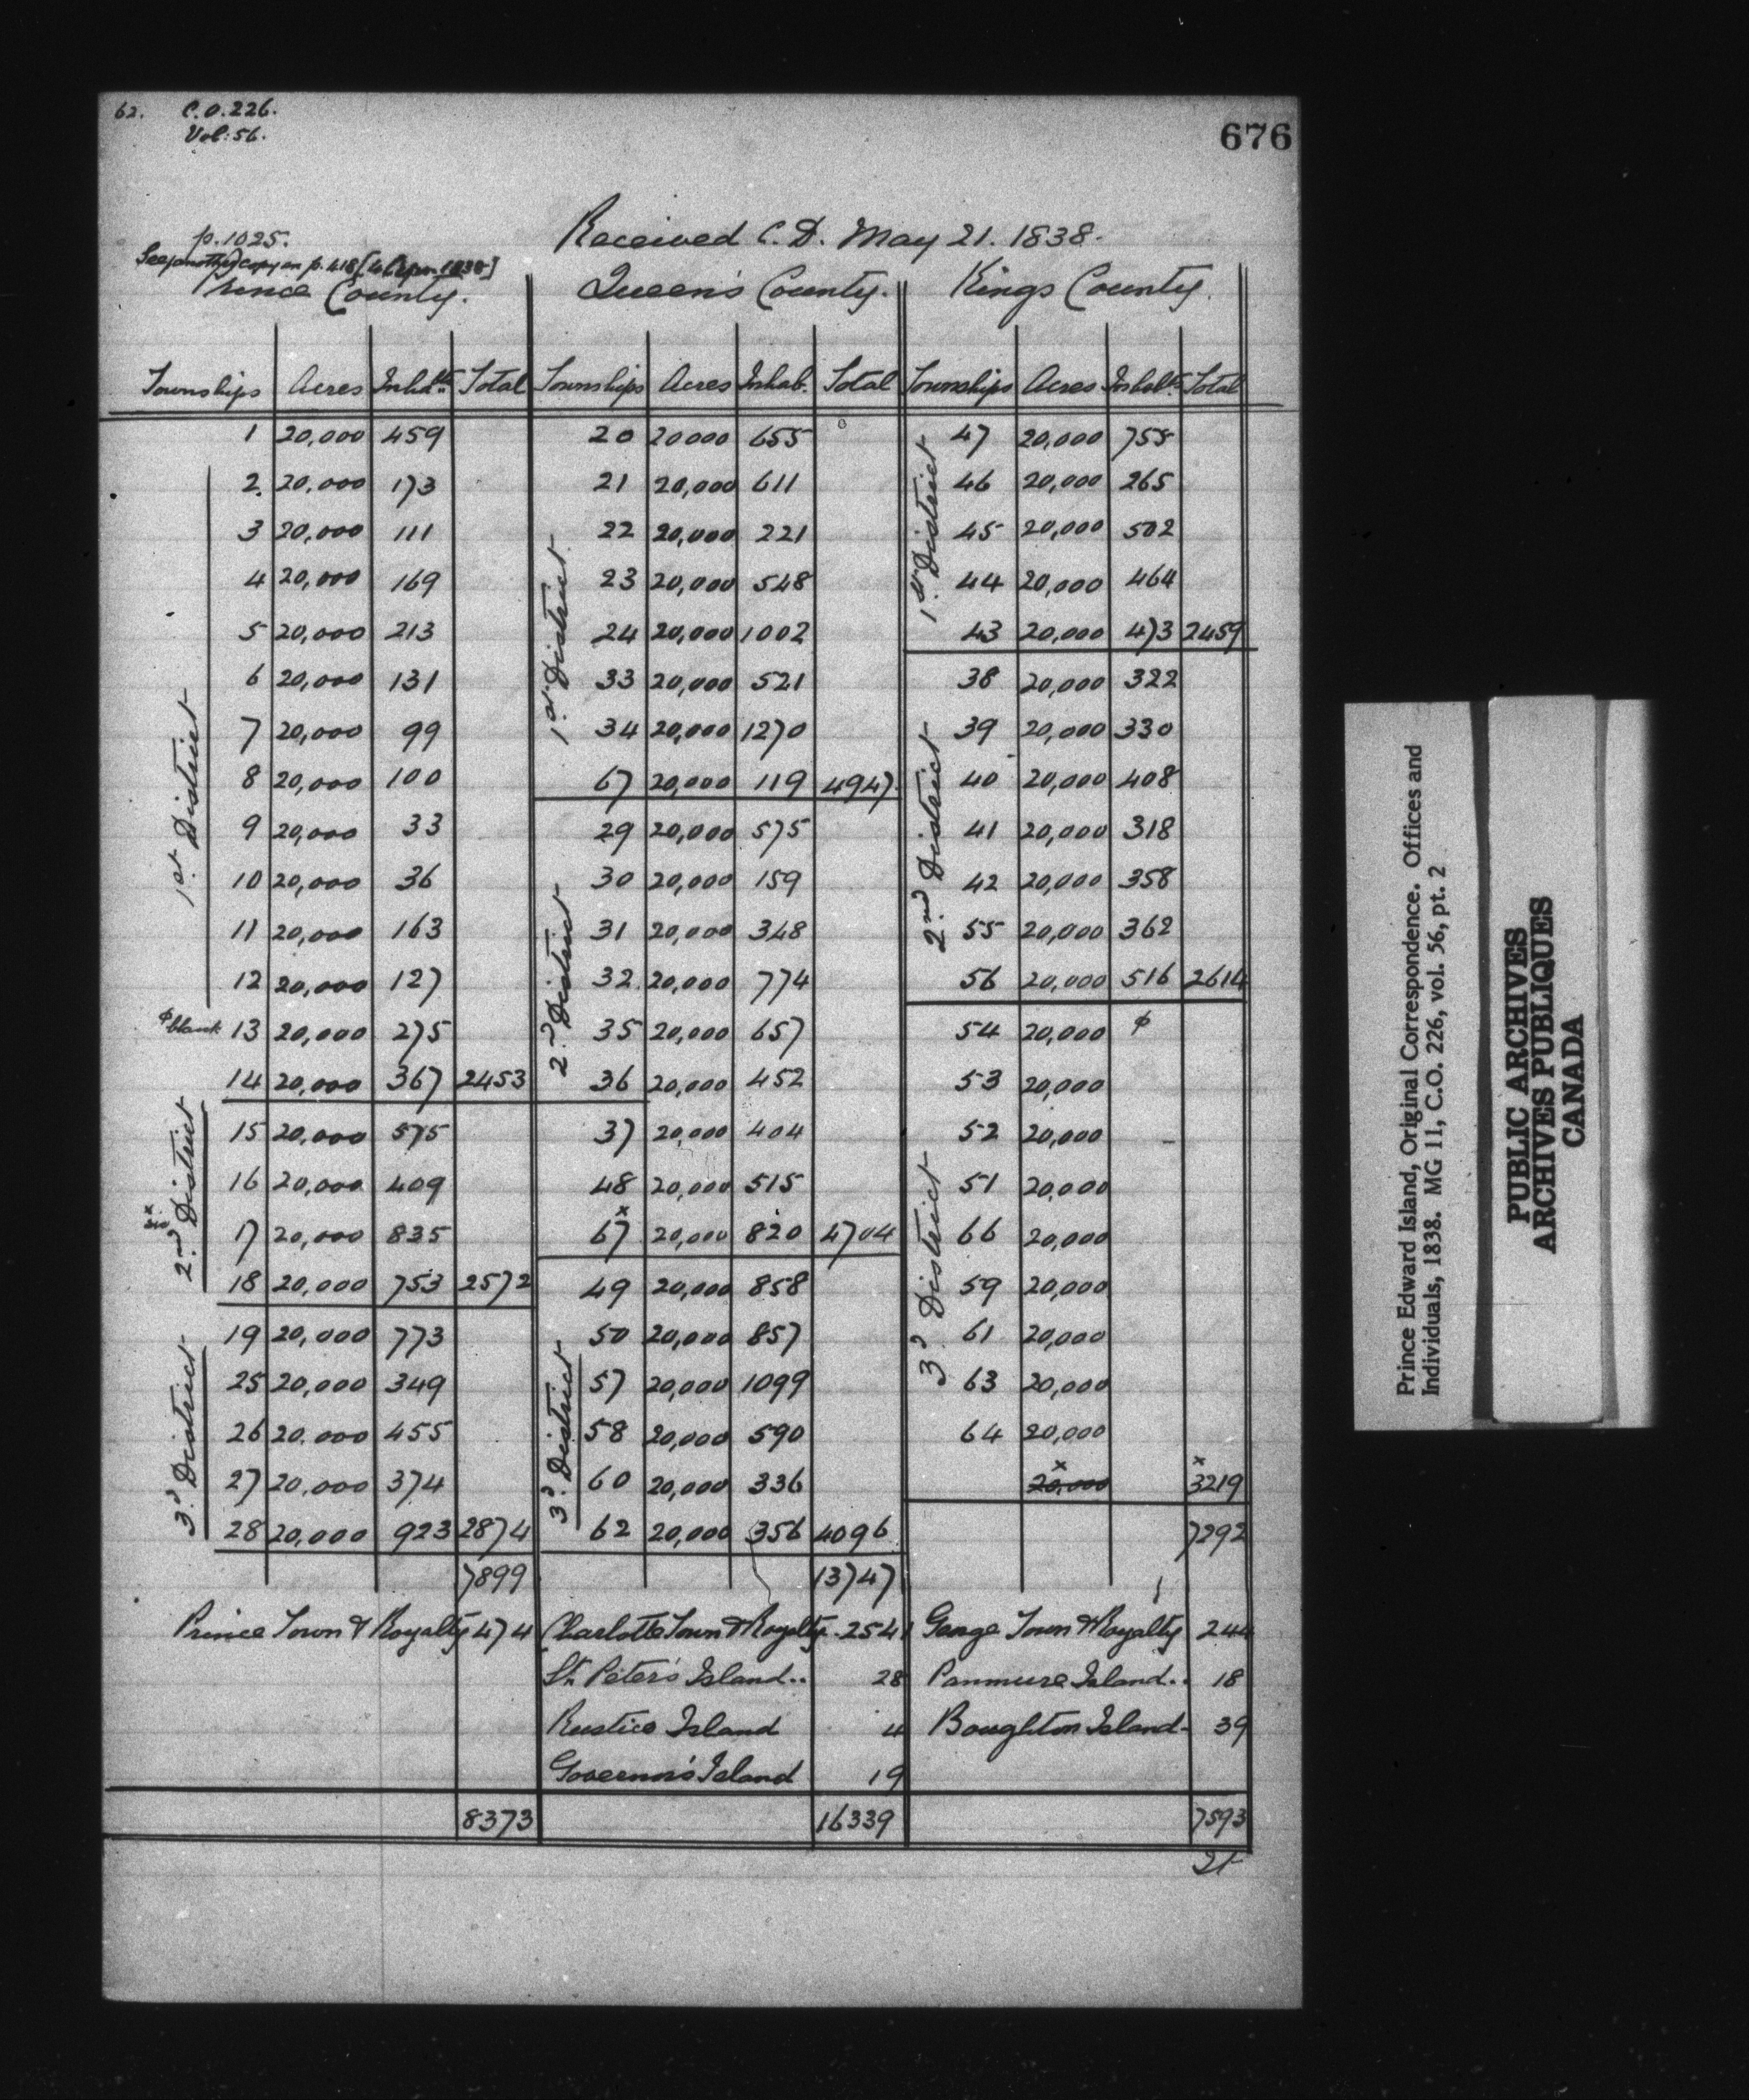 62. C.O.226.
Vol:56.
676
p.1025.
Received C.D. May 21. 1838.
See another copy on p.418
Prince County. Queen's County. Kings County.
Townships Acres Inhbts Total Townships Acres Inhab. Total Townships Acres Inhabts. Total
1 20,000 459 20 20000 655 47 20,000 755
2. 20,000 173 21 20,000 611 46 20,000 265
3 20,000 111 22 20,000 221 45 20,000 502
4 20,000 169 23 20,000 548 44 20,000 464
5 20,000 213 24 20,000 1002 43 20,000 473 2459
6 20,000 131 33 20,000 521 38 20,000 322
7 20,000 99 34 20,000 1270 39 20,000 330
8 20,000 100 67 20,000 119 4947. 40 20,000 408
9 20,000 33 29 20,000 575 41 20,000 318
10 20,000 36 30 20,000 159 42 20,000 358
11 20,000 163 31 20,000 348 55 20,000 362
12 20,000 127 32. 20,000 774 56 20,000 516 2614
φ blank 13 20,000 275 35 20,000 657 54 20,000 φ
14 20,000 367 2453 36 20,000 452 53 20,000
15 20,000 575 37 20,000 404 52 20,000
16 20,000 409 48 20,000 515 51 20,000
x sic 17 20,000 835 67 x 20,000 820 4704 66 20,000
18 20,000 753 2572 49 20,000 858 59 20,000
19 20,000 773 50 20,000 857 61 20,000
25 20,000 349 57 20,000 1099 63 20,000
26 20.000 455 58 20,000 590 64 20,000
27 20,000 374 60 20,000 336 x 20,000 x 3219
28 20,000 923 2874 62 20,000 356 4096 7292
7899 13747
1st District
2nd District
3d District
1st District
2d District
3d District
1st District
2nd District
3d District
Prince Town & Royalty 474 Charlotte Town & Royalty. 2541 George Town & Royalty 244
St. Peter's Island.. 28 Panmure Island.. 18
Rustico Island 4 Boughton Island- 39
Governor's Island 19
8373 16339 7593
Prince Edward Island, Original Correspondence. Offices and
Individuals, 1838. MG 11, C.O. 226, vol. 56, pt. 2
PUBLIC ARCHIVES
ARCHIVES PUBLIQUES
CANADA